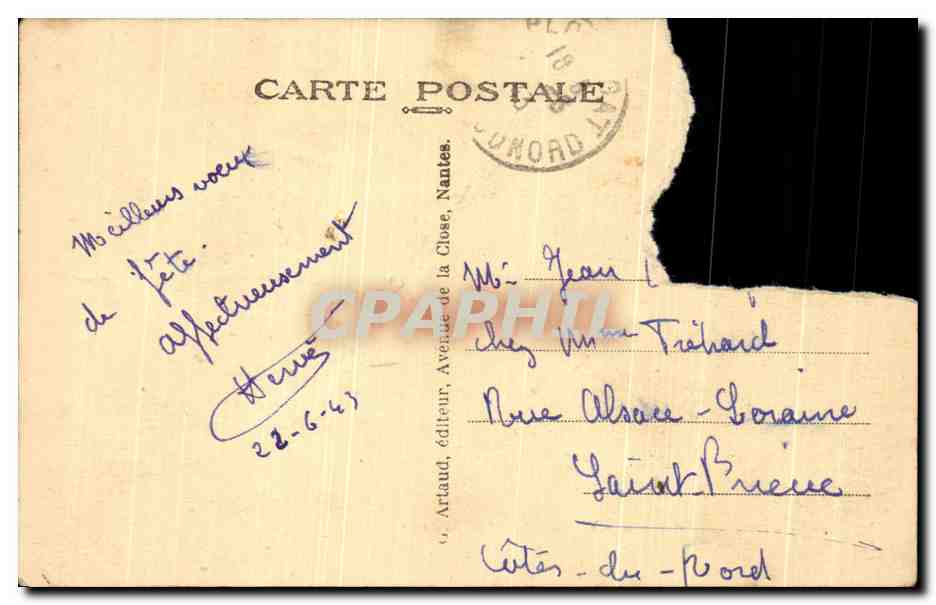 CARTE POSTALE
Meilleurs voeux
de fête.
affectueusement
Hervé
22-6-43
G. Artaud, éditeur, Avenue de la Close, Nantes.
Mr Jean
chez Mme Tréhard
Rue Alsace-Loraine
Saint-Brieuc
Côtes-du-Nord
CPAPHIL